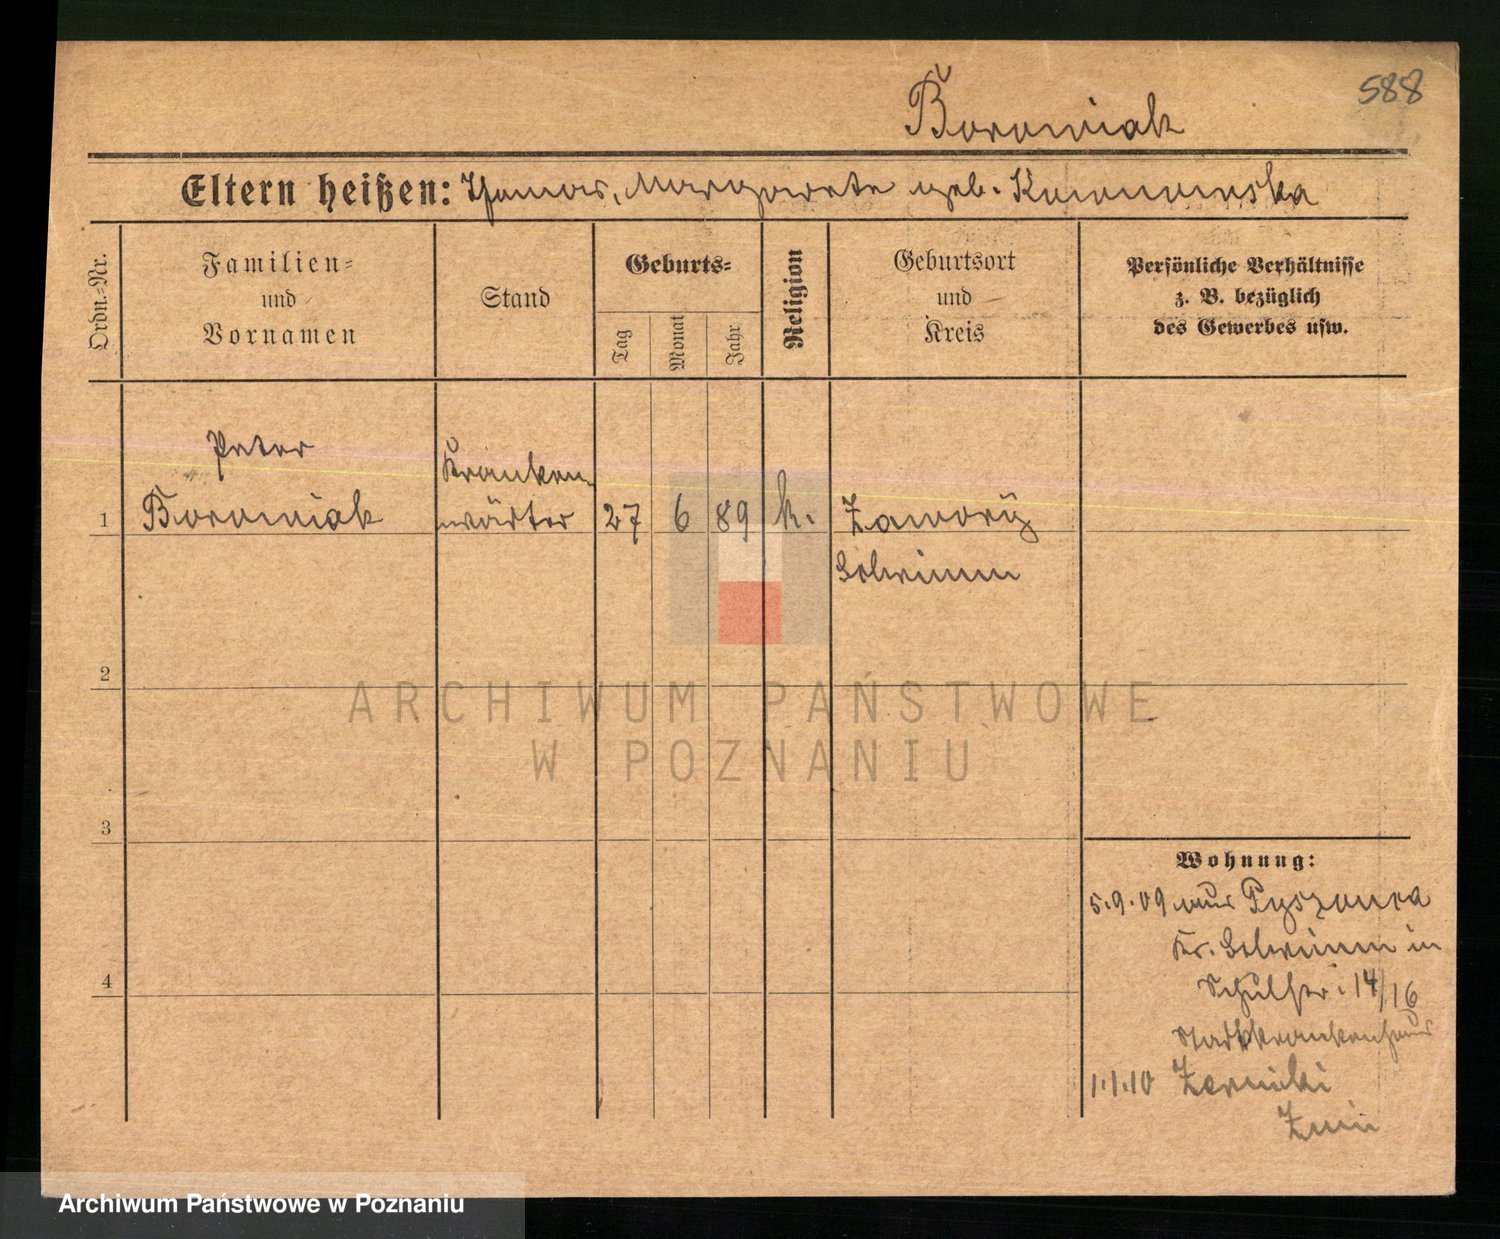 588
Boroniak
Eltern heißen: Thomas, Margarete geb.
Ordn.-Nr.
Familien-
und
Vornamen
Stand
Geburts-
Tag
Monat
Jahr
Religion
Geburtsort
und
Kreis
Persönliche Verhältnisse
z. B. bezüglich
des Gewerbes usw.
Peter
Kranken-
1 Boroniak wärter 27 6 89 k. Zaworÿ
Schrimm
2
ARCHIWUM PAŃSTWOWE
W POZNANIU
3
Wohnung:
5.9.09 aus Pyszonca
Kr. Schrimm in
Schulstr. 14/16
4
Stadtkrankenhaus
1.1.10 Zerniki
Znin
Archiwum Państwowe w Poznaniu